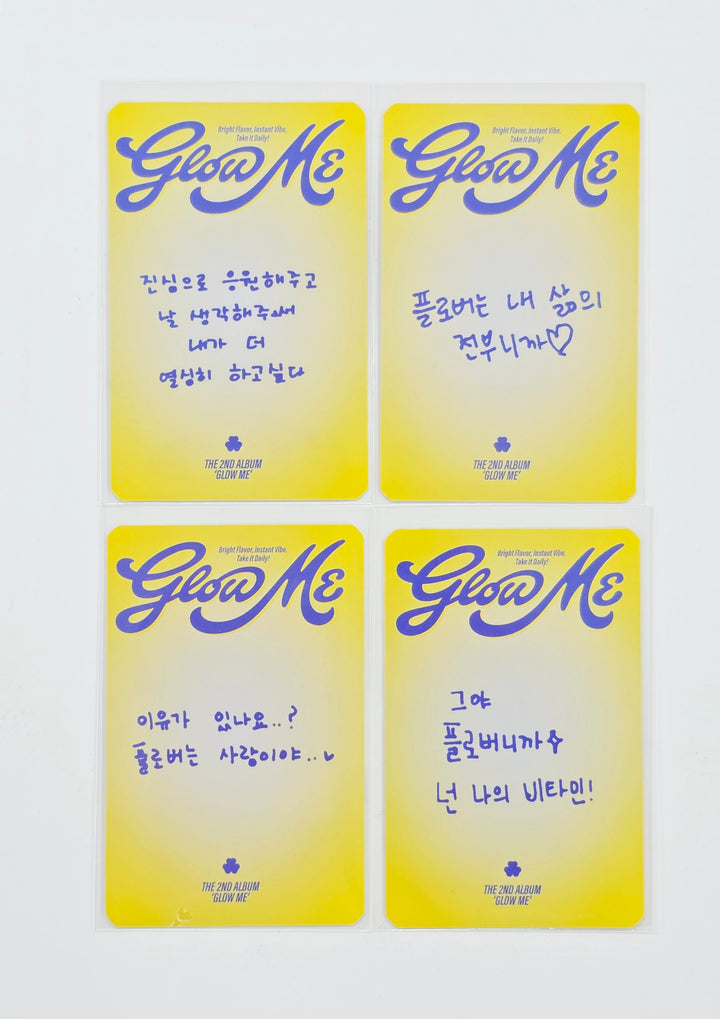 Bright Flavor, Instant Vibe.
Take It Daily!
Glow Me
진심으로 응원해주고
날 생각해주셔서
내가 더
열심히 하고싶다
THE 2ND ALBUM
'GLOW ME'
Bright Flavor, Instant Vibe.
Take It Daily!
Glow Me
플로버는 내 삶의
전부니까♡
THE 2ND ALBUM
'GLOW ME'
Bright Flavor, Instant Vibe.
Take It Daily!
Glow Me
이유가 있나요..?
플로버는 사랑이야..
THE 2ND ALBUM
'GLOW ME'
Bright Flavor, Instant Vibe.
Take It Daily!
Glow Me
그야
플로버니까
넌 나의 비타민!
THE 2ND ALBUM
'GLOW ME'